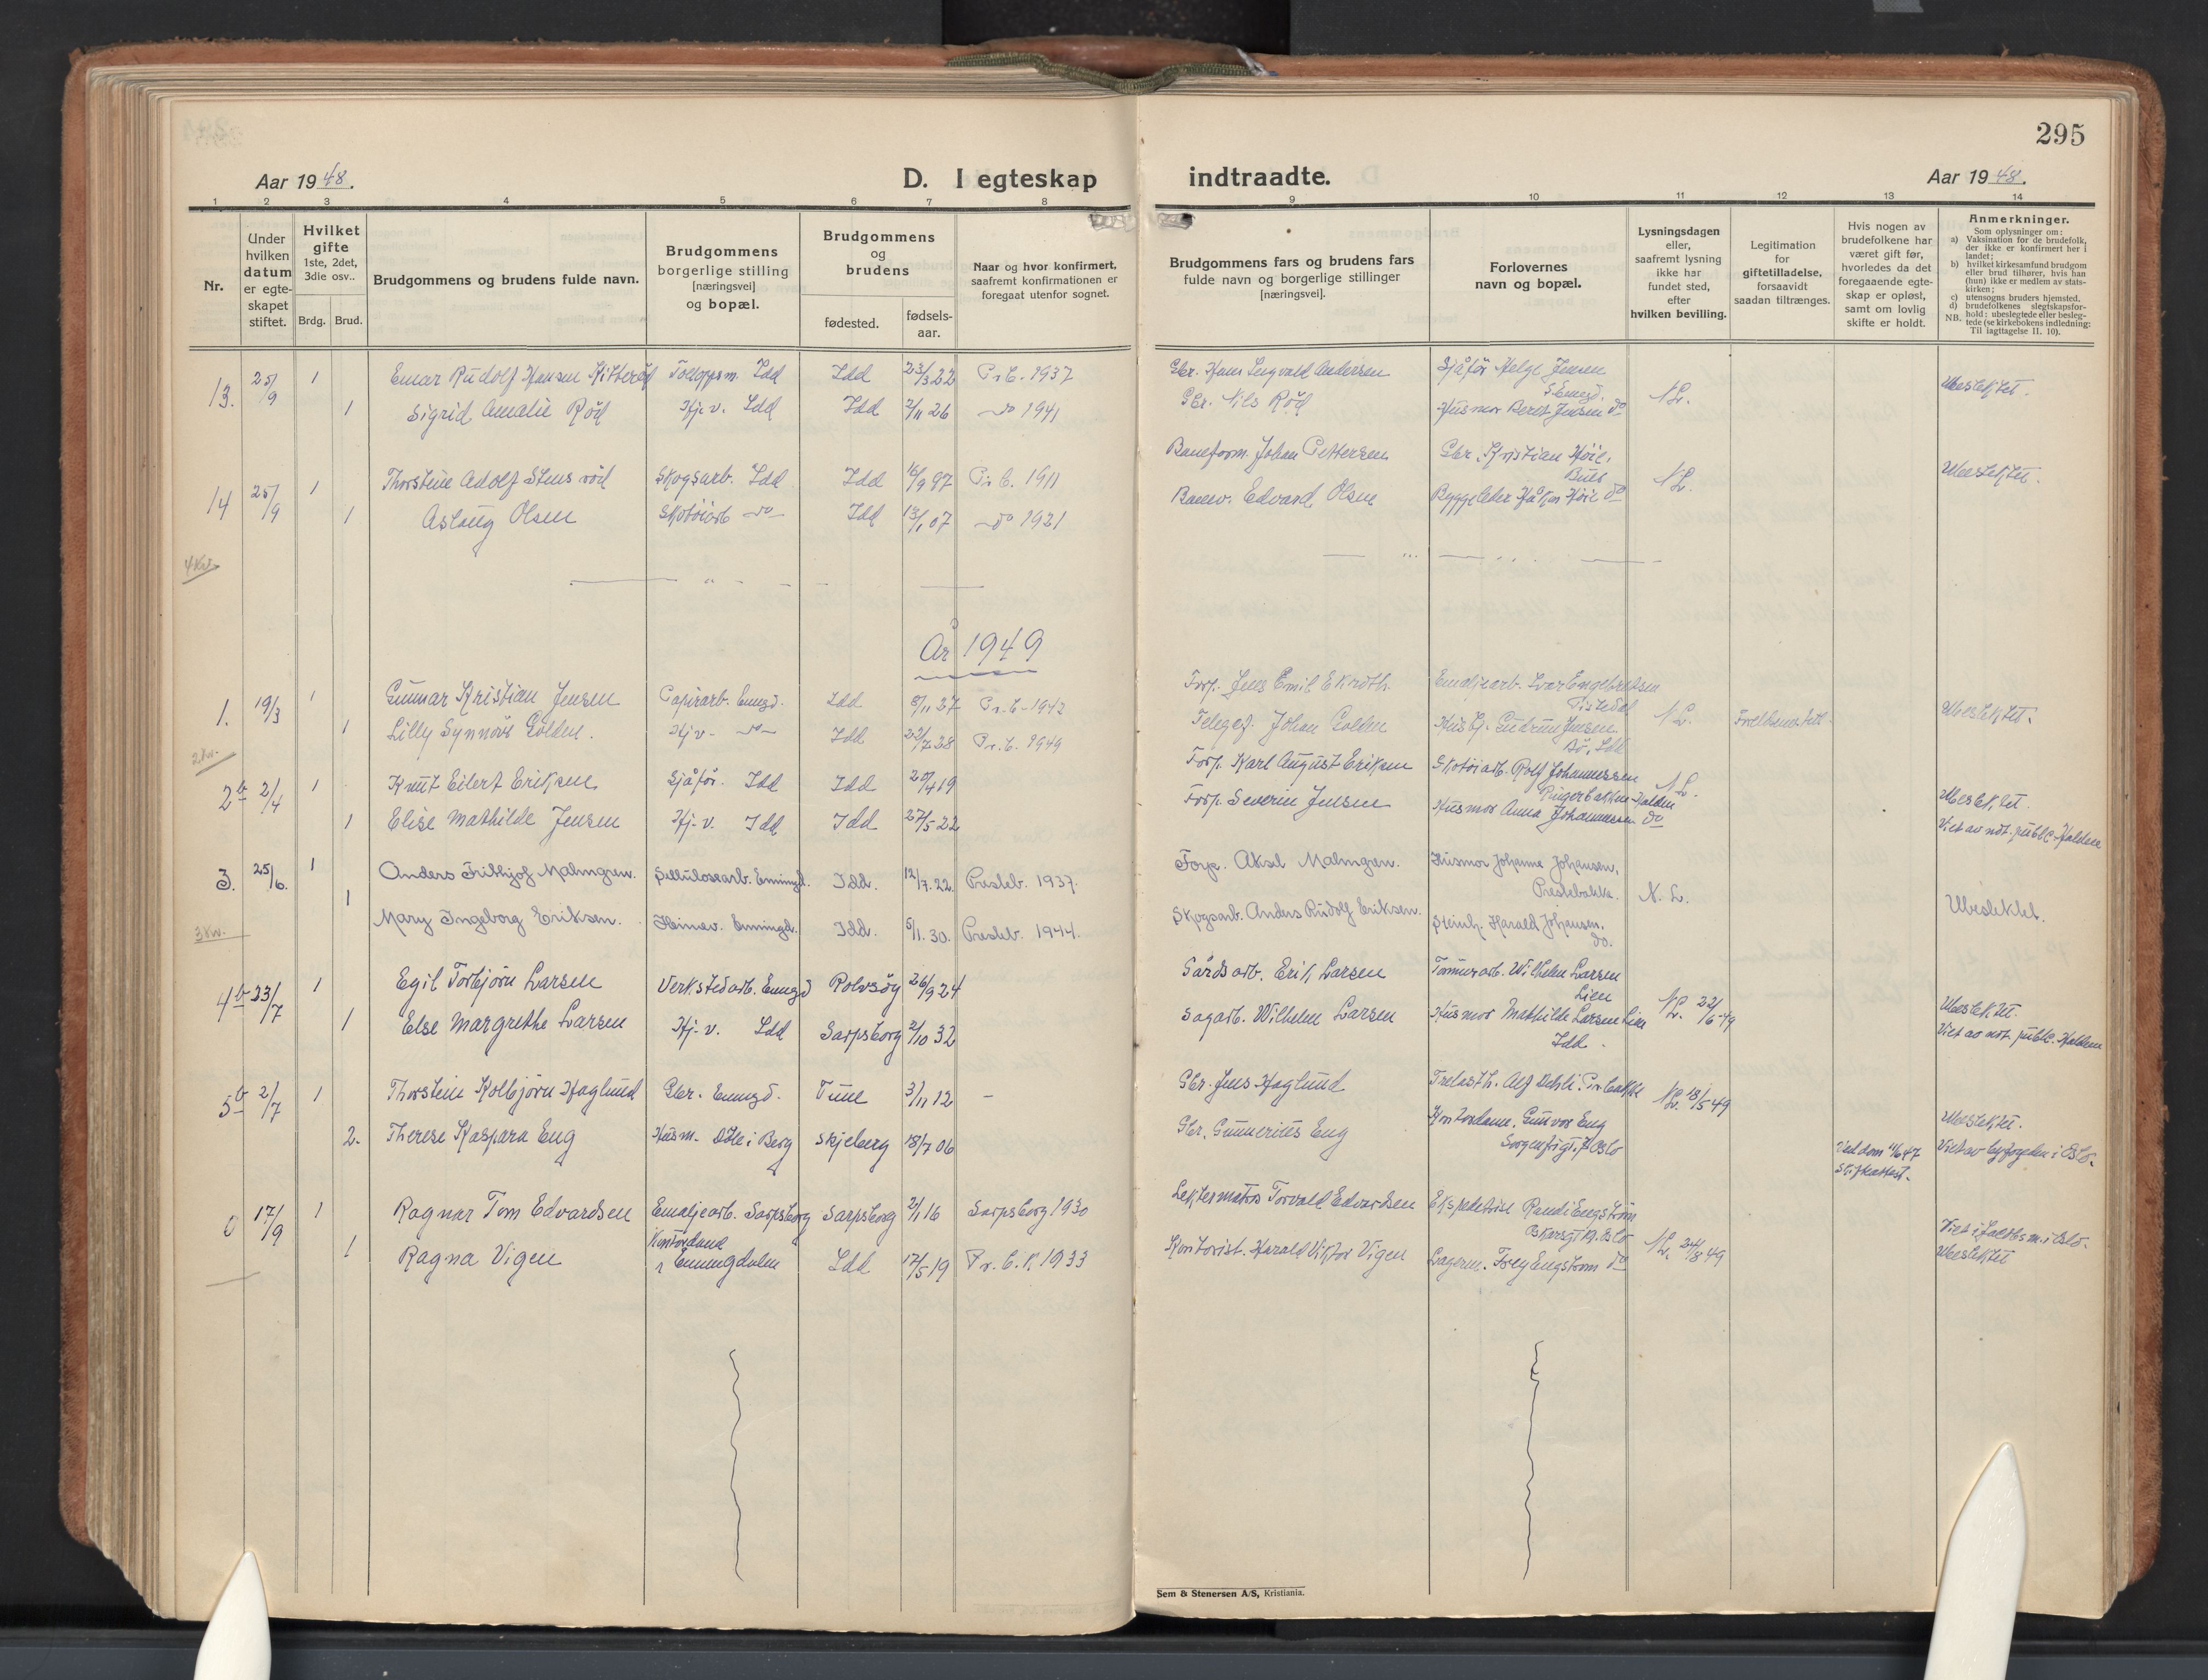 295
Aar 1948.
D. I egteskap
indtraadte.
Aar 1948.
1 2 3 4 5 6 7 8 9 10 11 12 13 14
Nr.
Under hvilken datum er egte-skapet stiftet.
Hvilket gifte
1ste, 2det, 3die osv..
Brdg. Brud.
Brudgommens og brudens fulde navn.
Brudgommens
borgerlige stilling
[næringsvei]
og bopæl.
Brudgommens
og
brudens
fødested.
fødsels-aar.
Naar og hvor konfirmert,
saafremt konfirmationen er
foregaat utenfor sognet.
Brudgommens fars og brudens fars
fulde navn og borgerlige stillinger
[næringsvei].
Forlovernes
navn og bopæl.
Lysningsdagen
eller,
saafremt lysning
ikke har
fundet sted,
efter
hvilken bevilling.
Legitimation
for
giftetilladelse,
forsaavidt
saadan tiltrænges.
Hvis nogen av
brudefolkene har
været gift før,
hvorledes da det
foregaaende egte-
skap er opløst,
samt om lovlig
skifte er holdt.
Anmerkninger.
Som oplysninger om:
a) Vaksination for de brudefolk,
der ikke er konfirmert her i
landet;
b) hvilket kirkesamfund brudgom
eller brud tilhører, hvis han
(hun) ikke er medlem av stats-
kirken;
c) utensogns bruders hjemsted.
d) brudefolkenes slegtskapsfor-
hold: ubeslegtede eller besleg-
NB. tede (se kirkebokens indledning:
Til iagttagelse II. 10).
13. 25/9 1 Einar Rudolf Hansen Kitterød Tolloppsm. Idd Idd 23/3 22 Pr.b. 1937 Gbr. Hans Lingvald Andersen Sjåfør Helge Jensen
Enngd. N L. Ubeslektet.
1 Sigrid Amalie Rød Hj. v. Idd Idd 2/11 26 do 1941 Gbr. Nils Rød Husmor Berit Jensen do
14 25/9 1 Thorstein Adolf Stensrød Skogsarb. Idd Idd 16/9 97 Pr.b. 1911 Baneform. Johan Pettersen Gbr. Kristian Høie,
Buer N L. Ubeslektet.
1 Aslaug Olsen Skotøiarb do Idd 13/1 07 do 1921 Banev. Edvard Olsen Byggeleder Håkon Høie do
4 Kv.
År 1949
1. 19/3 1 Gunnar Kristian Jensen Papirarb. Enngd. Idd 8/11 27 Pr.b. 1942 Forp. Jens Emil Ekroth. Emaljearb. Ivar Engebretsen
Tistedal N L. Ubeslektet.
1 Lilly Synnøve Golden. Hj v- do Idd 22/7 28 Pr.b. 1949 Telegrf. Johan Golden Hush. Gudrun Jensen
Bø, Idd
2 kv.
2 b 2/4 1 Knut Eilert Eriksen Sjåfør. Idd Idd 20/4 19 Forp. Karl August Eriksen Skotøiarb. Rolf Johannessen
Halden N L. Ubeslektet.
1 Elise Mathilde Jensen Hj. v. Idd Idd 27/5 22 Forp. Severin Jensen Husmor Anna Johannessen do Viet av not. publ. Halden
3. 25/6. 1 Anders Frithjof Malmgren. Cellulosearb. Enningd. Idd. 12/7. 22. Presteb. 1937. Forp. Aksel Malmgren. Husmor Johanne Johansen,
Prestebakke. N. L. Ubeslektet.
1 Mary Ingeborg Eriksen. Heimev. Enningd. Idd. 5/1. 30. Presteb. 1944. Skogsarb. Anders Rudolf Eriksen. Steinh. Harald Johansen,
do.
3 kv.
4 b 23/7 1 Egil Torbjørn Larsen Verkstedarb. Enngd Rolvsøy 26/9 24 Gårdsarb. Erik Larsen Tømmerarb. Wilhelm Larsen
Lien N L. 22/6-49 Ubeslektet.
1 Else Margrethe Larsen Hj. v. Idd Sarpsborg 2/10 32 Sagarb. Wilhelm Larsen Husmor Mathilde Larsen Lien
Idd. Viet av not. publ. Halden
5 b 2/7 1 Thorstein Kolbjørn Haglund Gbr. Enngd. Tune 3/11 12 - Gbr. Jens Haglund Trelasth. Alf Dehli. Pr.bakke N L. 18/5 49
2. Therese Kaspara Eng Husm. i Berg Skjeberg 18/7 06 Gbr. Gunnerius Eng Kontordame. Gunvor Eng
Sorgenfrigt. Oslo Ubeslektet.
Ved dom 11/6 47 Viet av byfogden i Oslo.
Skifteattest.
0 17/9 1 Ragnar Tom Edvardsen Emaljearb. Sarpsborg Sarpsborg 2/1 16 Sarpsborg 1930 Torvald Edvardsen Ekspeditrise Randi Engstrøm
Oskarsgt. Oslo N L. 24/8 49 Viet i Oslo.
1 Ragna Vigen Kontordame
Enningdalen Idd 17/5 19 Pr. b. K. 1933 Kontorist. Harald Viktor Vigen Lagerm. Frey Engstrøm do Ubeslektet
Sem & Stenersen A/S, Kristiania.